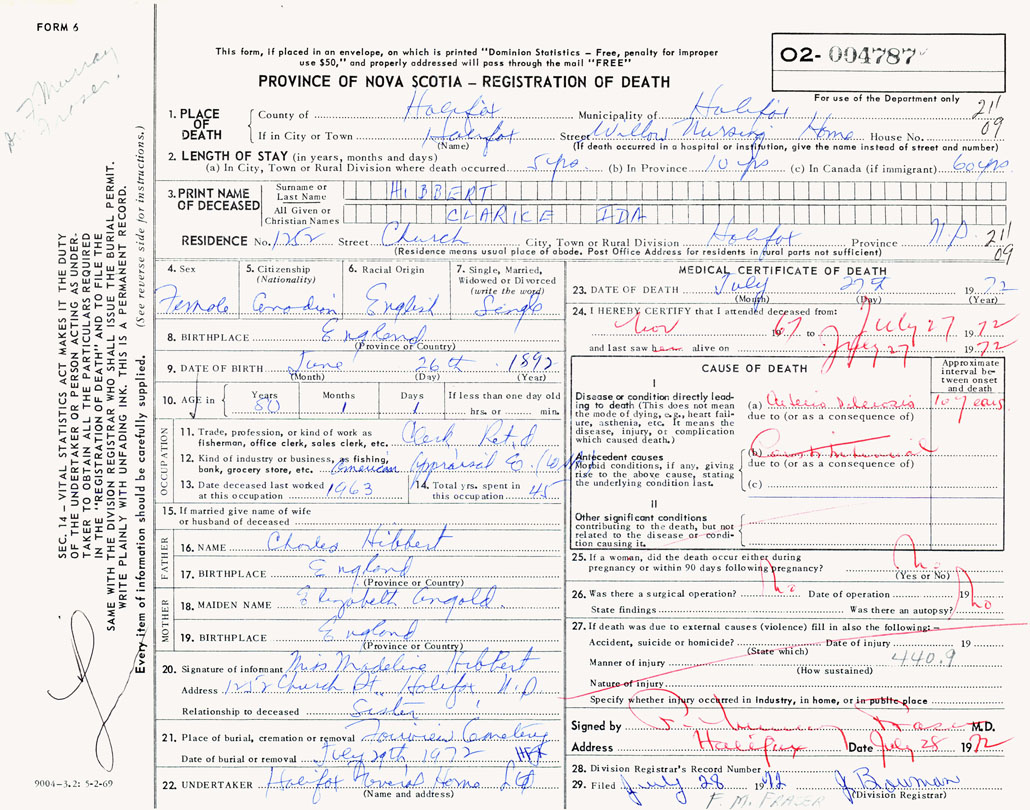 FORM 6
This form, if placed in an envelope, on which is printed "Dominion Statistics – Free, penalty for improper
use $50," and properly addressed will pass through the mail "FREE"
PROVINCE OF NOVA SCOTIA – REGISTRATION OF DEATH
O2- 004787
For use of the Department only
211
09
1. PLACE OF DEATH
County of Halifax Municipality of Halifax
If in City or Town Halifax Street Willow Nursing Home House No.
(Name) (If death occurred in a hospital or institution, give the name instead of street and number)
2. LENGTH OF STAY (in years, months and days)
(a) In City, Town or Rural Division where death occurred 5 yrs. (b) In Province 10 yrs (c) In Canada (if immigrant) 60 yrs.
3. PRINT NAME OF DECEASED
Surname or Last Name HIBBERT
All Given or Christian Names CLARICE IDA
RESIDENCE No. 1252 Street Church City, Town or Rural Division Halifax Province N.S. 211
09
(Residence means usual place of abode. Post Office Address for residents in rural parts not sufficient)
4. Sex
Female
5. Citizenship (Nationality)
Canadian
6. Racial Origin
English
7. Single, Married, Widowed or Divorced (write the word)
Single
8. BIRTHPLACE England
(Province or Country)
9. DATE OF BIRTH June 26th 1892
(Month) (Day) (Year)
10. AGE in
Years 80
Months 1
Days 1
If less than one day old
hrs. or min.
OCCUPATION
11. Trade, profession, or kind of work as fisherman, office clerk, sales clerk, etc. Clerk Ret.d
12. Kind of industry or business, as fishing, bank, grocery store, etc. American Appraisal
13. Date deceased last worked at this occupation 1963
14. Total yrs. spent in this occupation 45
15. If married give name of wife
or husband of deceased
FATHER
16. NAME Charles Hibbert
17. BIRTHPLACE England
(Province or Country)
MOTHER
18. MAIDEN NAME Elizabeth Angold
19. BIRTHPLACE England
(Province or Country)
20. Signature of informant Miss Madeline Hibbert
Address 1252 Church St. Halifax N.S.
Relationship to deceased Sister
21. Place of burial, cremation or removal Fairview Cemetery
Date of burial or removal July 29th 1972 HFX
22. UNDERTAKER Halifax Funeral Home Ltd
(Name and address)
MEDICAL CERTIFICATE OF DEATH
23. DATE OF DEATH July 27th 1972
(Month) (Day) (Year)
24. I HEREBY CERTIFY that I attended deceased from:
Nov 1967 to July 27 1972
and last saw her alive on July 27 1972
CAUSE OF DEATH
Approximate interval between onset and death
I
Disease or condition directly leading to death (This does not mean the mode of dying, e.g., heart failure, asthenia, etc. It means the disease, injury, or complication which caused death.)
(a) Arterio Sclerosis 10 years
due to (or as a consequence of)
Antecedent causes
Morbid conditions, if any, giving rise to the above cause, stating the underlying condition last.
(b)
due to (or as a consequence of)
(c)
II
Other significant conditions
contributing to the death, but not related to the disease or condition causing it.
25. If a woman, did the death occur either during
pregnancy or within 90 days following pregnancy? No
(Yes or No)
26. Was there a surgical operation? No Date of operation 19
State findings Was there an autopsy? No
27. If death was due to external causes (violence) fill in also the following: –
Accident, suicide or homicide? Date of injury 19
(State which)
440.9
Manner of injury
(How sustained)
Nature of injury
Specify whether injury occurred in industry, in home, or in public place
Signed by F. Murray Fraser M.D.
Address Halifax Date July 28 1972
28. Division Registrar's Record Number
29. Filed July 28 1972 J. Bowman
(Division Registrar)
F. M. FRASER
F Murray
Fraser.
SEC. 14 – VITAL STATISTICS ACT MAKES IT THE DUTY
OF THE UNDERTAKER OR PERSON ACTING AS UNDER-
TAKER TO OBTAIN ALL THE PARTICULARS REQUIRED
IN THE "REGISTRATION OF DEATH" AND TO FILE THE
SAME WITH THE DIVISION REGISTRAR WHO SHALL ISSUE THE BURIAL PERMIT.
WRITE PLAINLY WITH UNFADING INK. THIS IS A PERMANENT RECORD.
Every item of information should be carefully supplied. (See reverse side for instructions.)
9004-3.2: 5-2-69